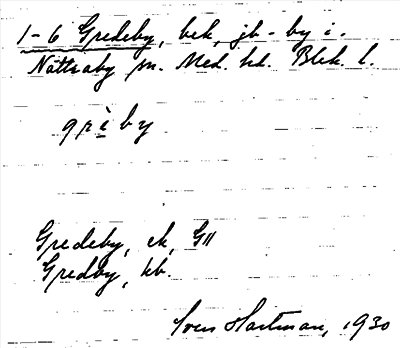 1-6 Gredeby, bek, jb-by i.
Nättraby sn. Med. hd. Blek. l.
grèby
Gredeby, ek, GII
Gredby, kb.
Sven Hartman, 1930